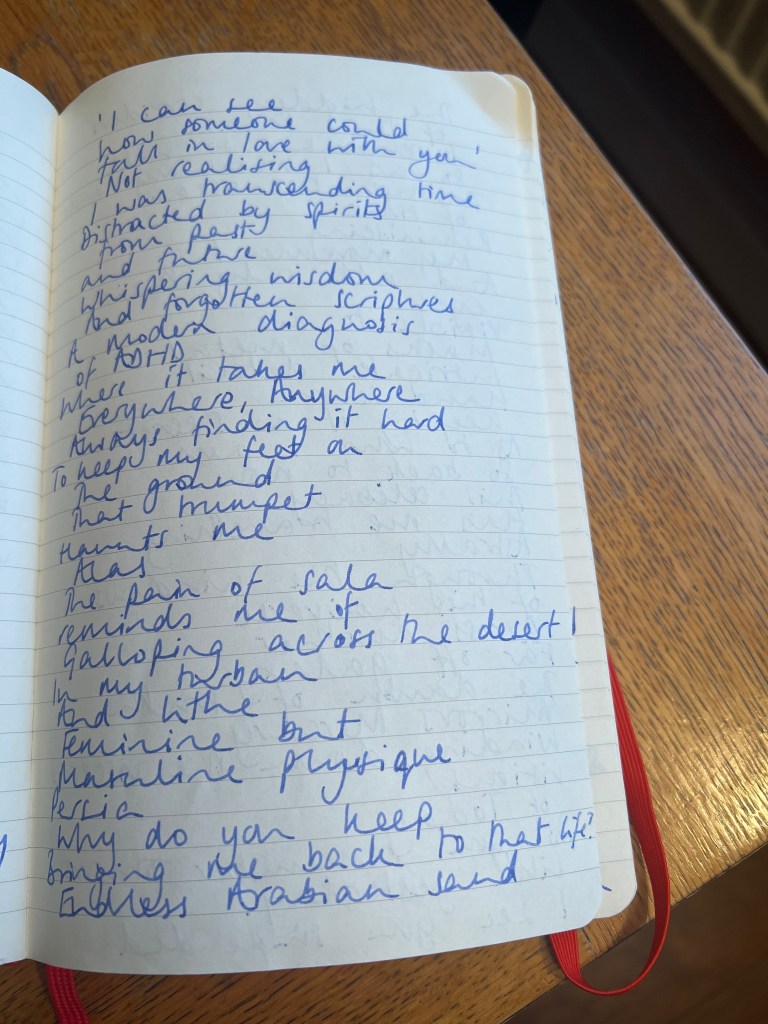 'I can see
how someone could
fall in love with you'
Not realising
I was transcending time
Distracted by spirits
from past
and future
Whispering wisdom
And forgotten scriptures
A modern diagnosis
of ADHD
Where it takes me
Everywhere, Anywhere
Always finding it hard
To keep my feet on
The ground
That trumpet
Haunts me
Alas
The pain of
reminds me of
Galloping across the desert
In my turban
And lithe
Feminine but
Masculine physique
Persia
Why do you keep
Bringing me back to that life?
Endless Arabian sand